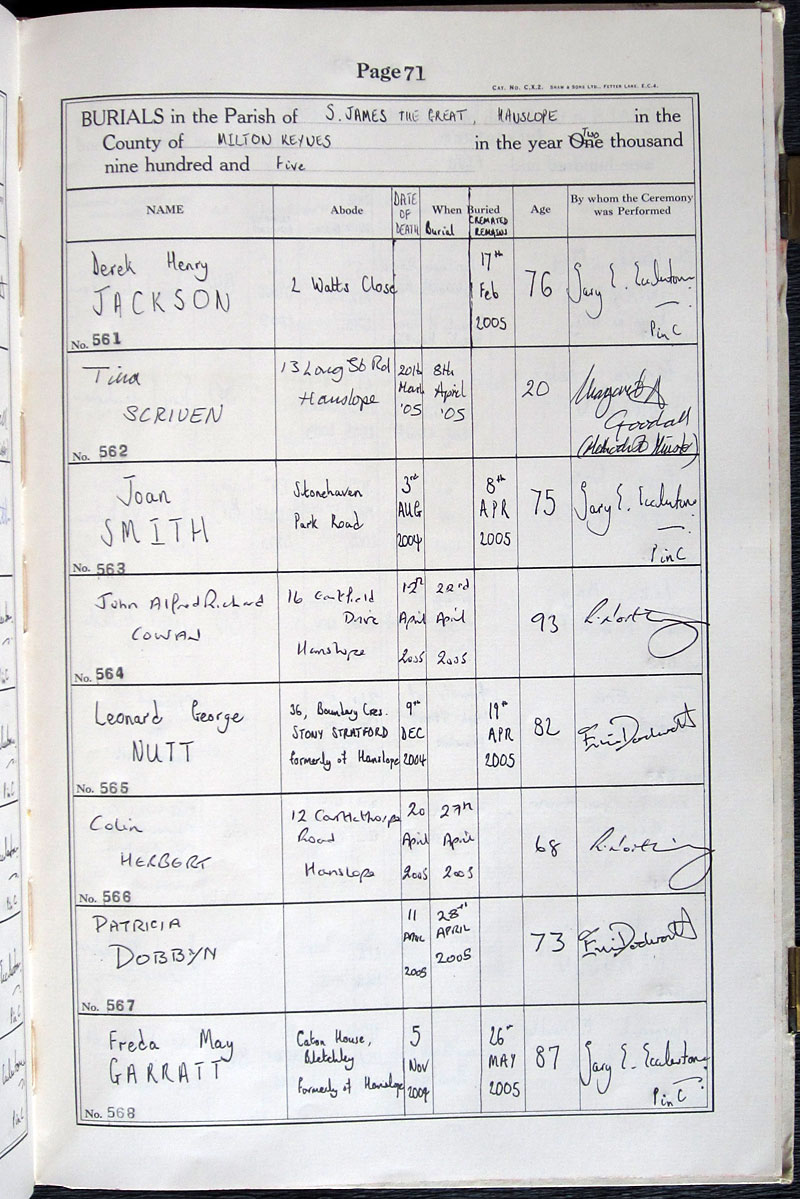 Page 71
CAT. No. C.X.2. SHAW & SONS LTD., FETTER LANE, E.C.4.
BURIALS in the Parish of S. JAMES THE GREAT, HANSLOPE in the
County of MILTON KEYNES in the year One Two thousand
nine hundred and Five
NAME Abode DATE OF DEATH When Buried Burial CREMATED REMAINS Age By whom the Ceremony was Performed
Derek Henry
JACKSON
No. 561
2 Watts Close
17th
Feb
2005
76
Gary E. Ecclestone
P in C
Tina
SCRIVEN
No. 562
13 Long St Rd
Hanslope
20th
March
'05
8th
April
'05
20
Margaret A
Goodall
(Methodist Minister)
Joan
SMITH
No. 563
Stonehaven
Park Road
3rd
AUG
2004
8th
APR
2005
75
Gary E. Ecclestone
P in C
John Alfred Richard
COWAN
No. 564
16
Drive
Hanslope
12th
April
2005
22nd
April
2005
93
Leonard George
NUTT
No. 565
36, Boundary Cres.
STONY STRATFORD
formerly of Hanslope
9th
DEC
2004
19th
APR
2005
82
Colin
HERBERT
No. 566
12 Castlethorpe
Road
Hanslope
20
April
2005
27th
April
2005
68
PATRICIA
DOBBYN
No. 567
11
APRIL
2005
28TH
APRIL
2005
73
Freda May
GARRATT
No. 568
Caton House,
Bletchley
formerly of Hanslope
5
Nov
2004
26th
MAY
2005
87
Gary E. Ecclestone
P in C